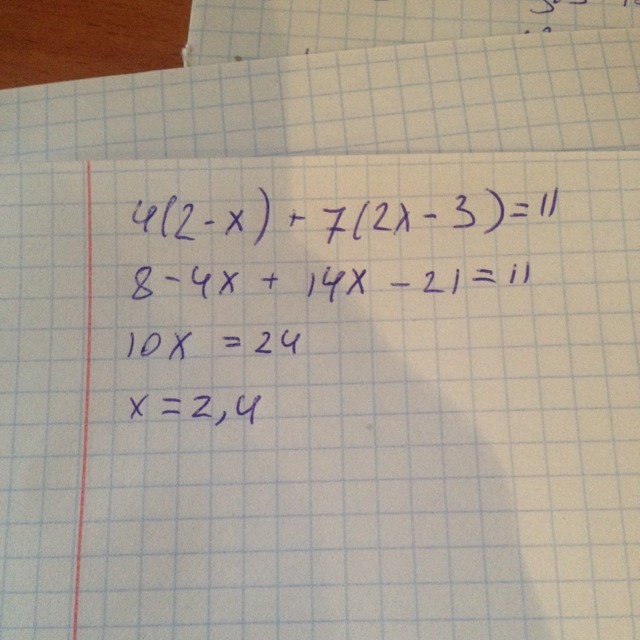 4(2-x) + 7(2x-3)=11
8-4x + 14x -21=11
10x = 24
x=2,4